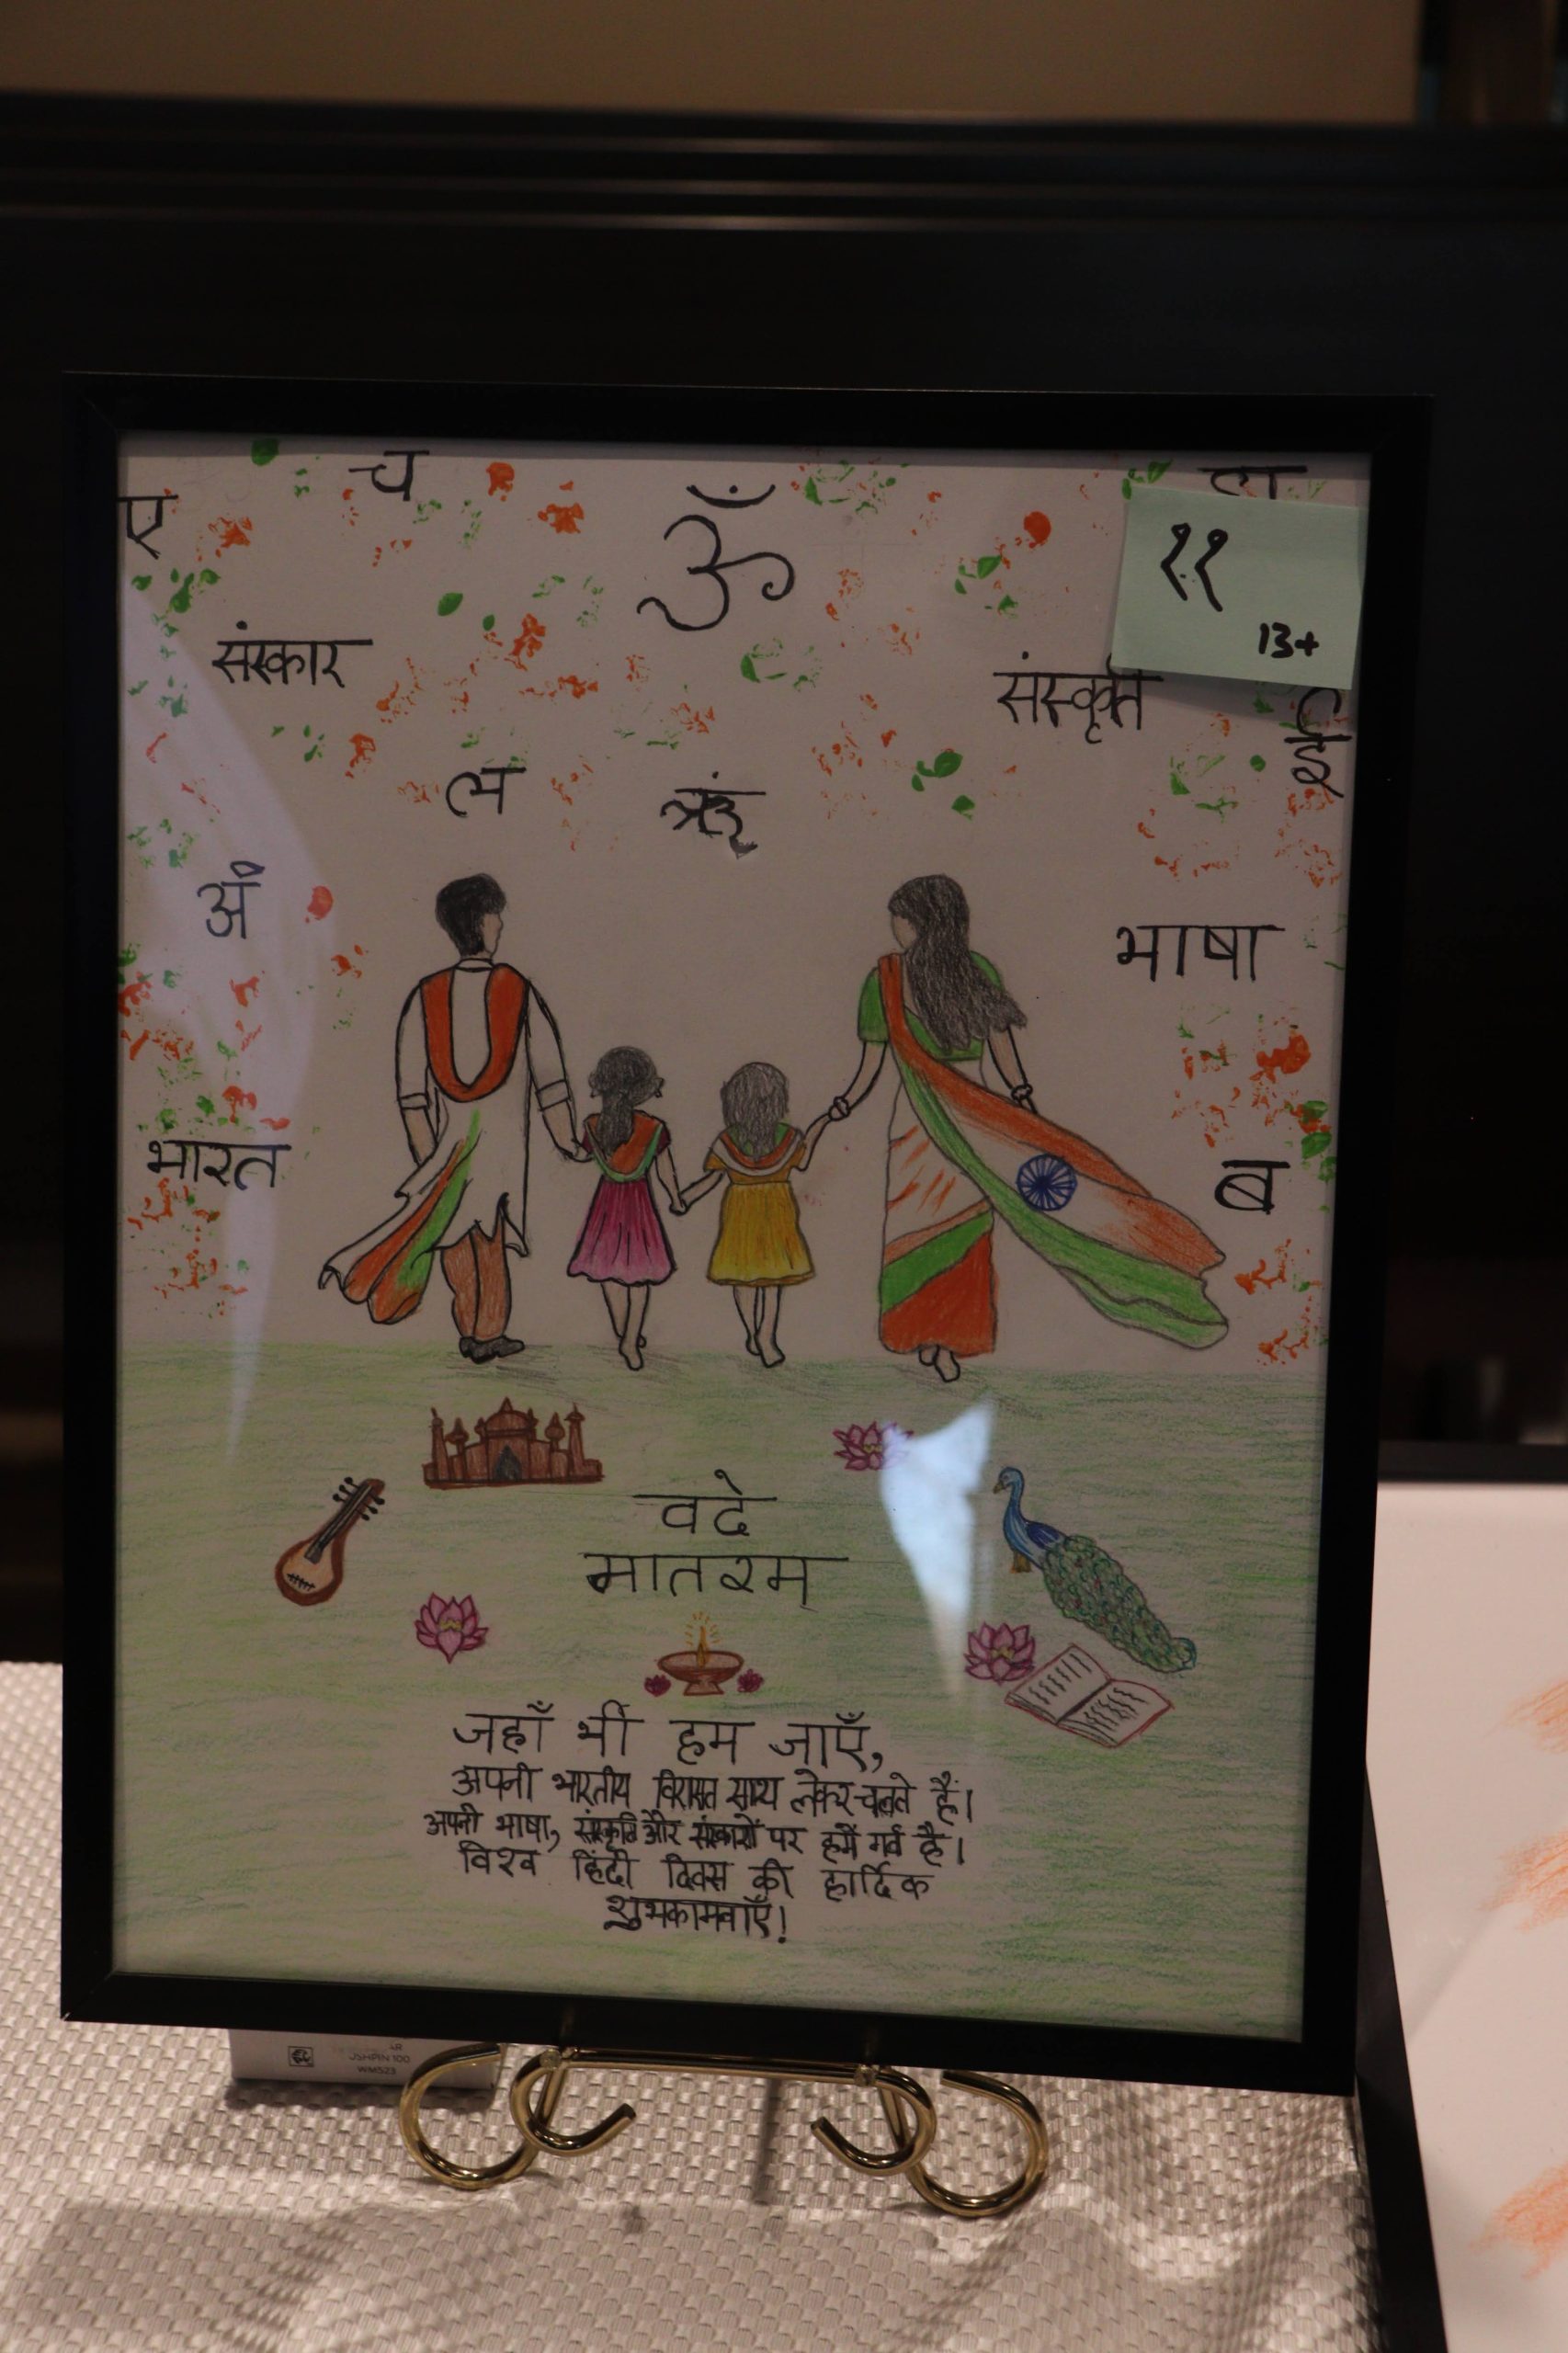 च
ल
ए
ॐ
११
13+
संस्कार
संस्कृति
ई
त्म
ऋं
अं
भाषा
भारत
ब
वदे
मातरम्
जहाँ भी हम जाएँ,
अपनी भारतीय विरासत साथ लेकर चलते हैं।
अपनी भाषा, संस्कृति और संस्कारों पर हमें गर्व है।
विश्व हिंदी दिवस की हार्दिक
शुभकामनाएँ!
4R
JSHPIN 100
WM523